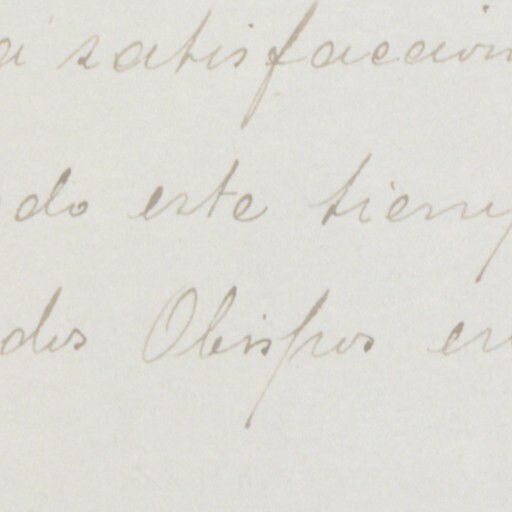 a satisfaccion
do este tiemp
dos Obispos en